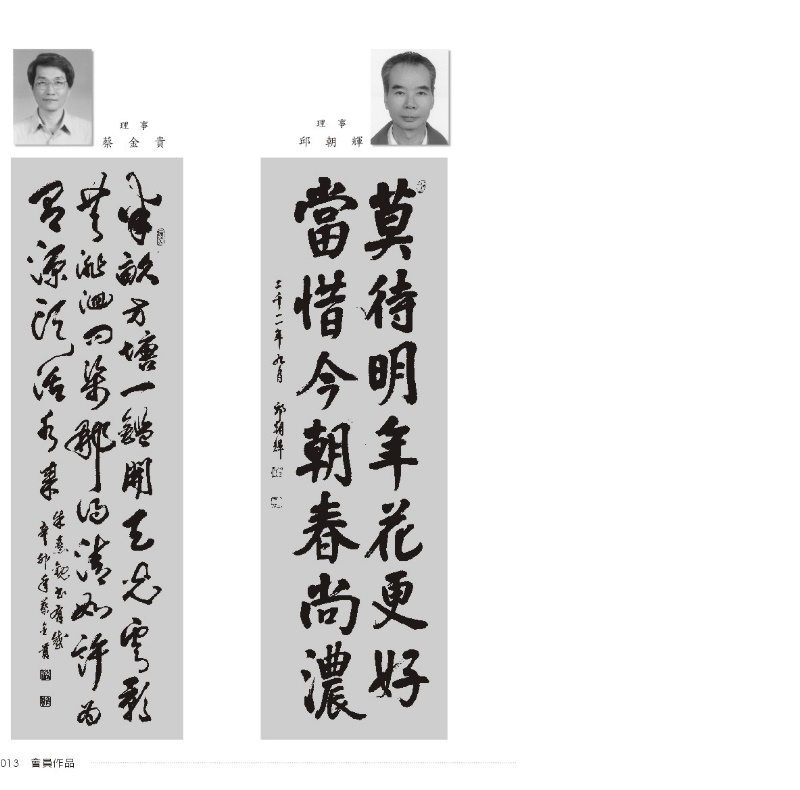 理事
邱朝輝
莫待明年花更好
當惜今朝春尚濃
二千一二年九月 邱朝輝
理事
蔡金貴
半畝方塘一鑑開天光雲影
共徘徊問渠那得清如許為
有源頭活水來
朱熹觀書有感
辛卯年蔡金貴
013 會員作品